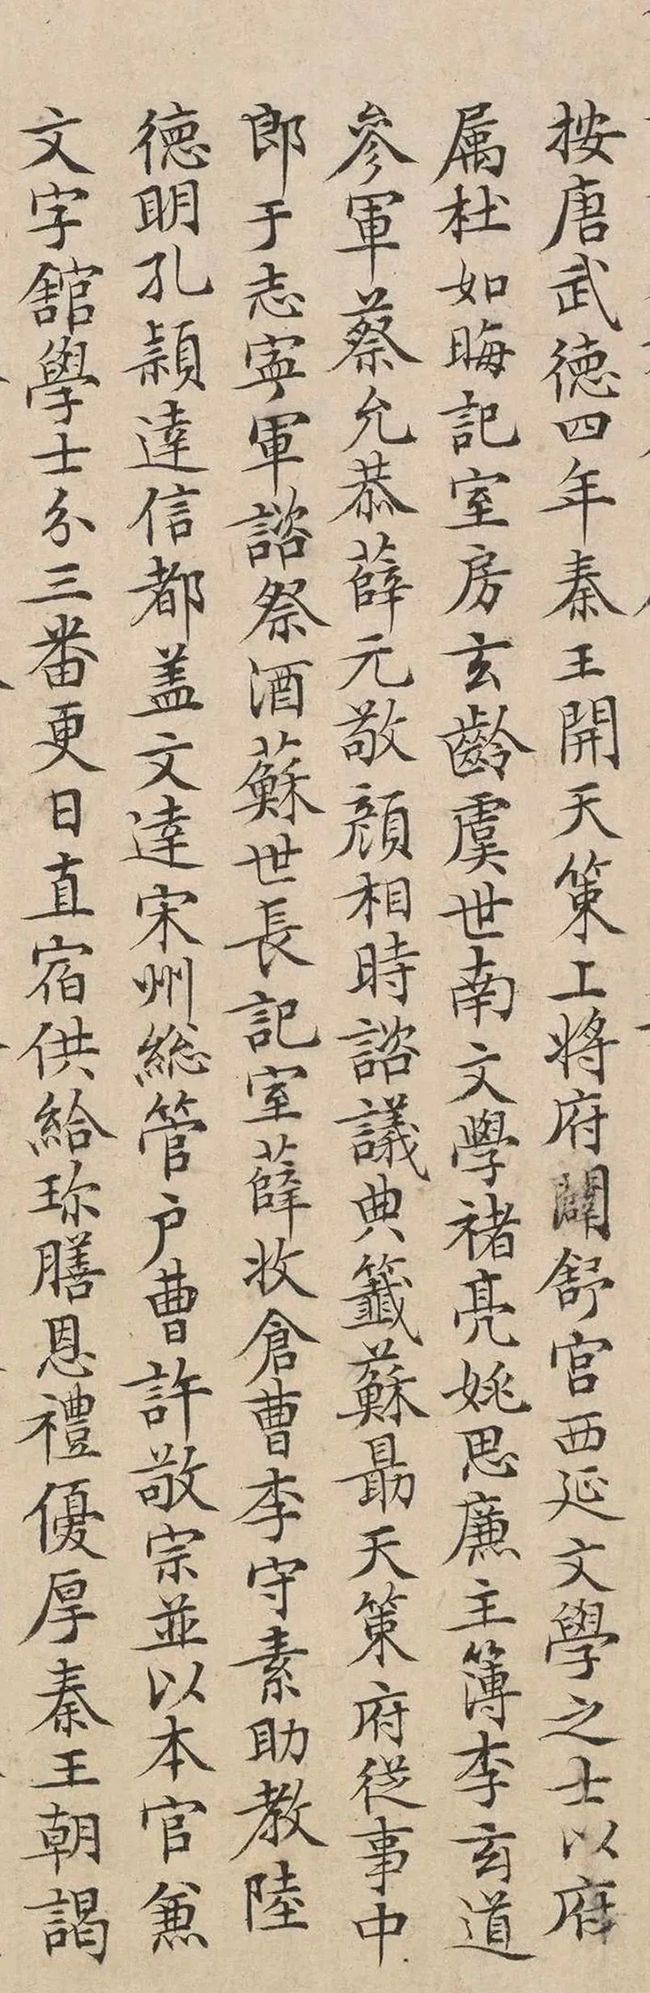 按唐武德四年秦王開天策工将府闢舒宫西延文學之士以府
属杜如晦記室房玄齡虞世南文學褚亮姚思廉主簿李玄道
參軍蔡允恭薛元敬顔相時諮議典籤蘇勗天策府從事中
郎于志寧軍諮祭酒蘇世長記室薛收倉曹李守素助教陸
徳明孔穎達信都盖文達宋州總管户曹許敬宗並以本官兼
文字舘學士分三番更日直宿供給珎膳恩禮優厚秦王朝謁